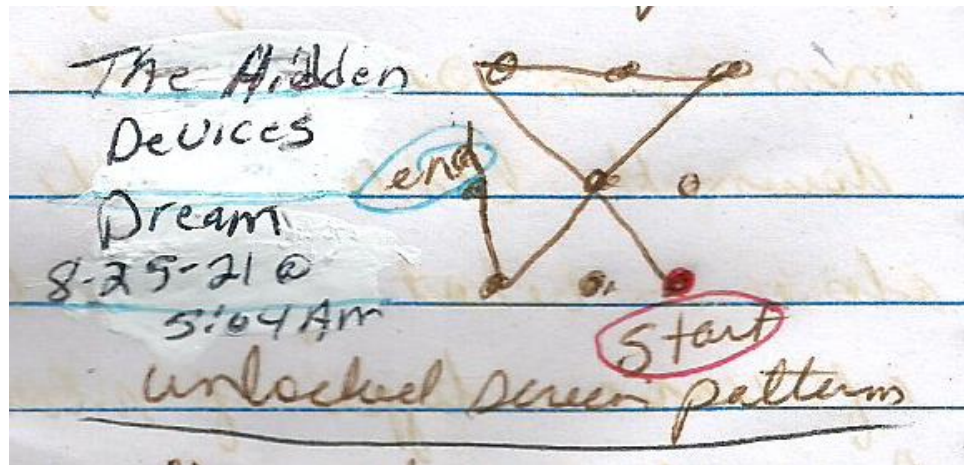 The Hidden
Devices
Dream
8-25-21 @
5:04 Am
end
start
unlocked screen pattern